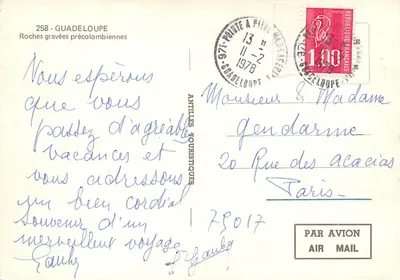 258 - GUADELOUPE
Roches gravées précolombiennes
Nous espérons
que vous
passez d'agreables
vacances et
vous adressons
un bien cordial
souvenir d'un
merveilleux voyage
Gauby
Gauby
ANTILLES TOURISTIQUES
971 - POINTE A PITRE
13 H
11-2
1978
GUADELOUPE
REPUBLIQUE FRANÇAISE
1,00
Monsieur & Madame
Gendarme
20 Rue des acacias
Paris
75017
PAR AVION
AIR MAIL